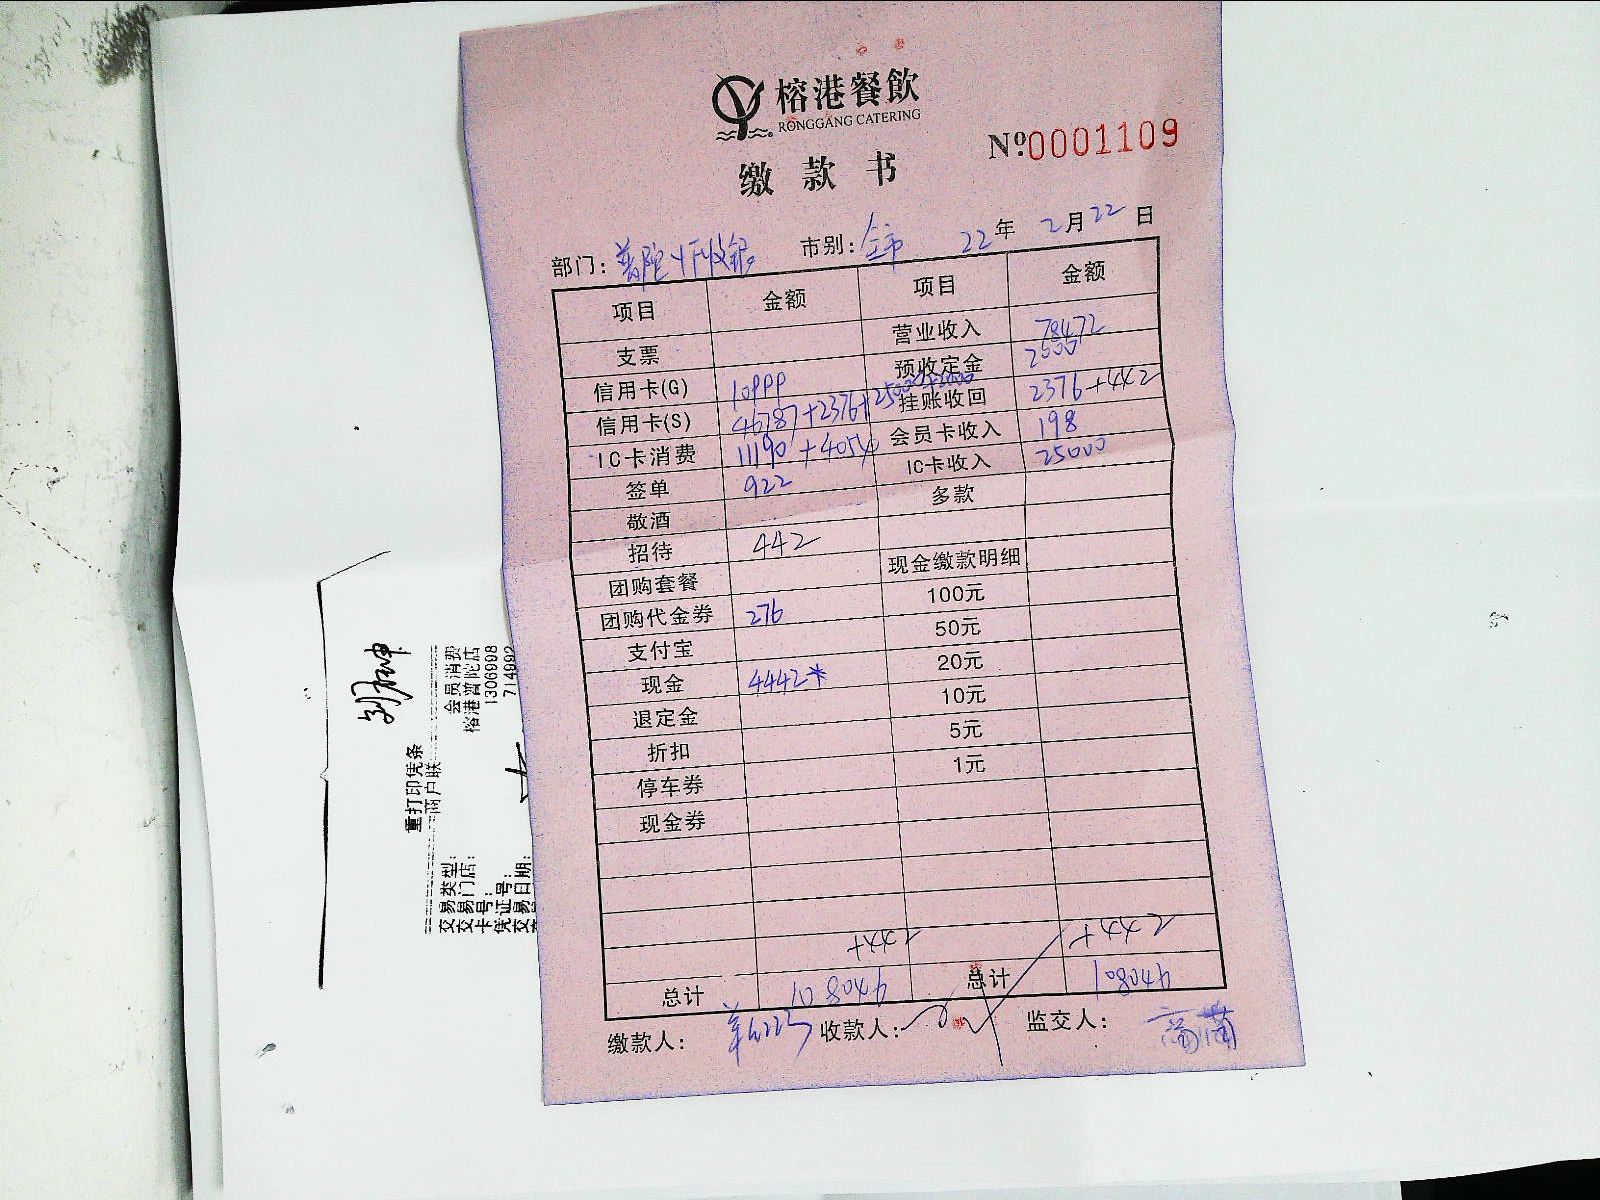 榕港餐飲
RONGGANG CATERING
缴款书
Nº 0001109
部门: 普陀1F收银 市别: 全市 22年 2月22日
项目 金额 项目 金额
营业收入 78472
支票 预收定金 2000
信用卡(G) 10999 挂账收回 2376+442
信用卡(S) 46787+2376+25000+2000 会员卡收入 198
IC卡消费 11190+4054 IC卡收入 25000
签单 922 多款
敬酒
招待 442 现金缴款明细
团购套餐 100元
团购代金券 276 50元
支付宝 20元
现金 4442* 10元
退定金 5元
折扣 1元
停车券
现金券
+442 +442
总计 108046 总计 108046
缴款人: 收款人: 监交人:
重打印凭条
商户联
交易类型: 会员消费
交易门店: 榕港普陀店
卡号: 1306998
凭证号: 714992
交易日期: